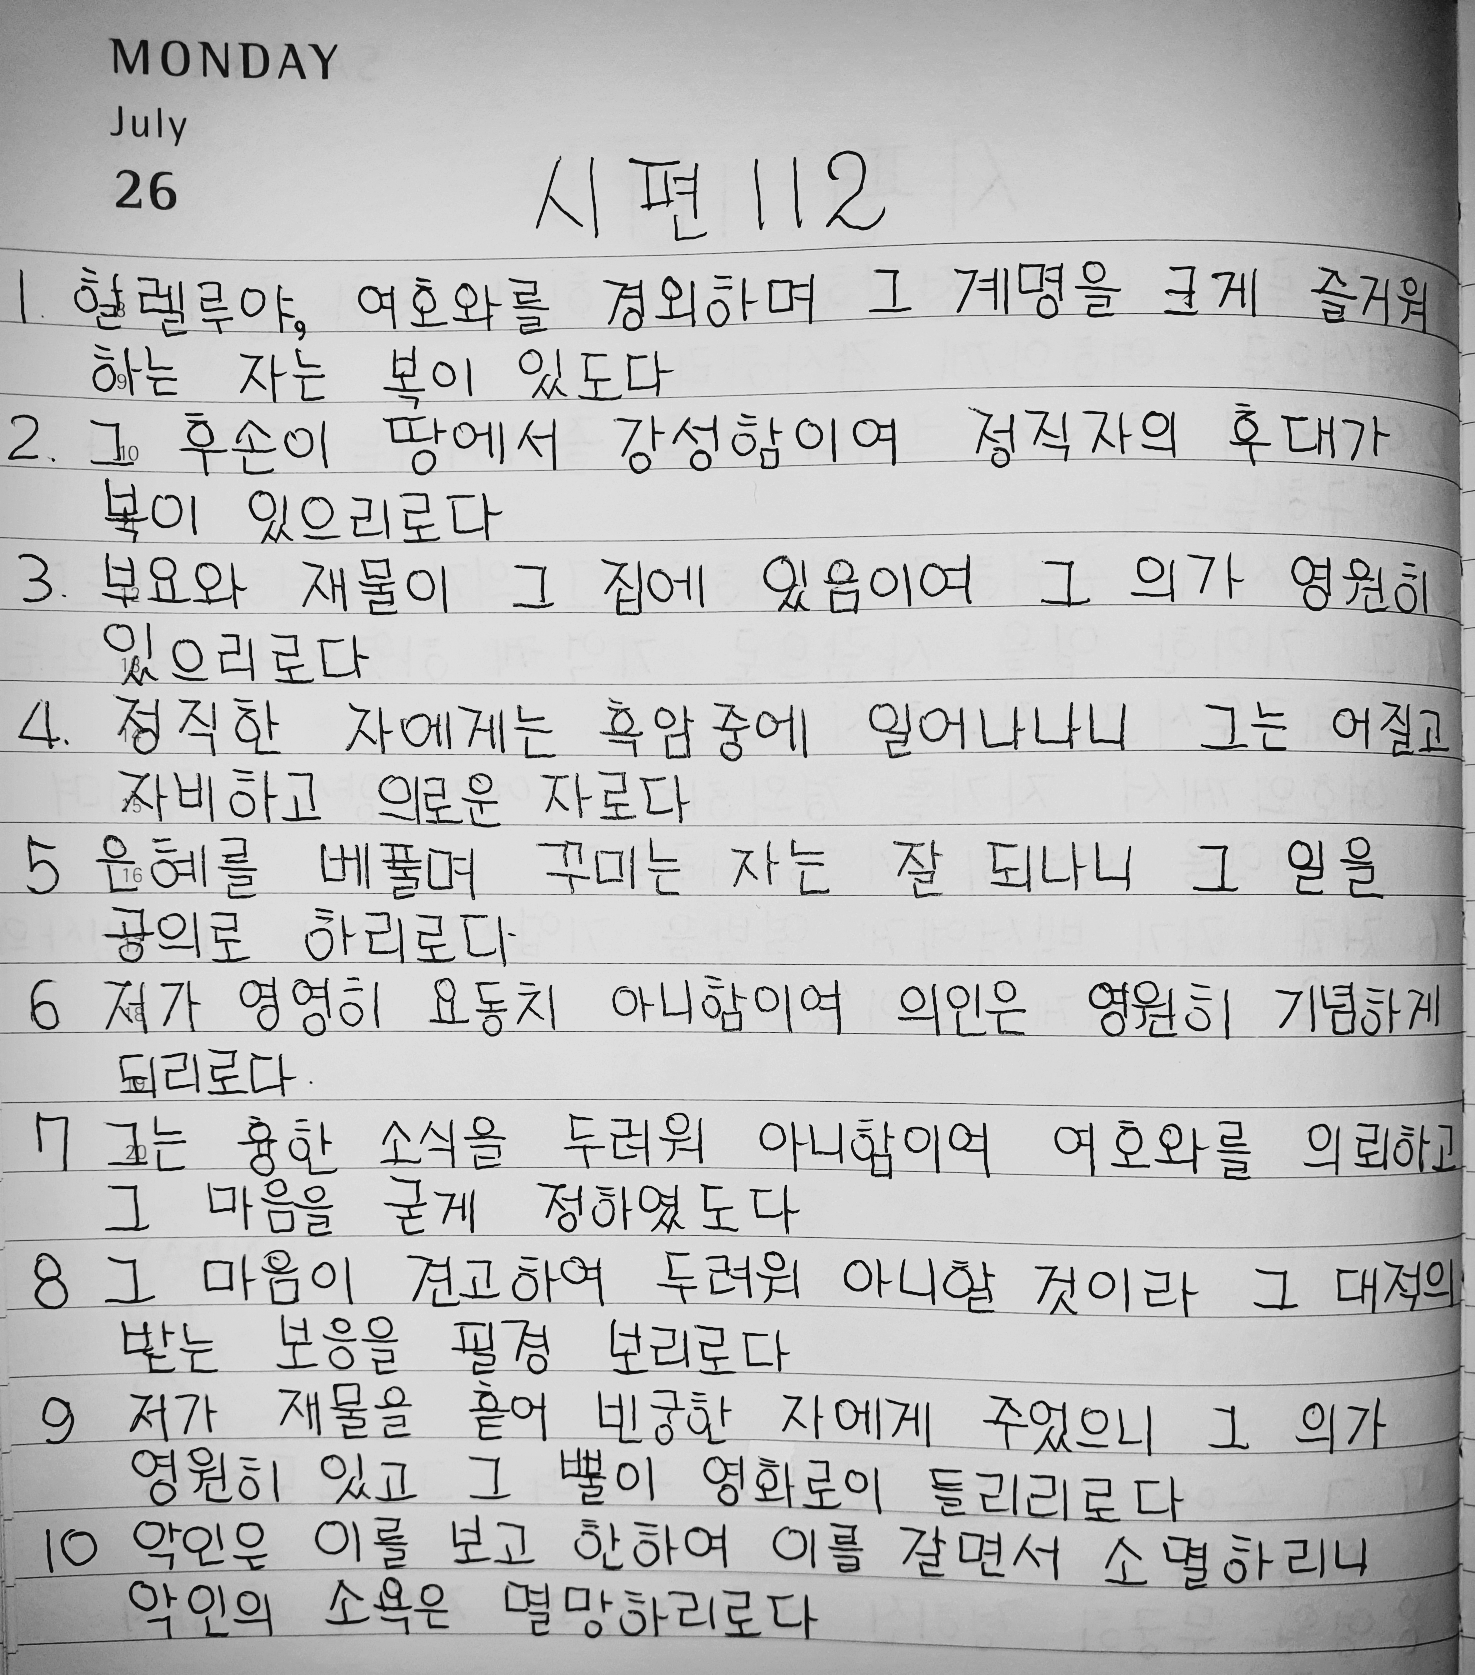 MONDAY
July
26
시편 112
1. 할렐루야, 여호와를 경외하며 그 계명을 크게 즐거워
하는 자는 복이 있도다
2. 그 후손이 땅에서 강성함이여 정직자의 후대가
복이 있으리로다
3. 부요와 재물이 그 집에 있음이여 그 의가 영원히
있으리로다
4. 정직한 자에게는 흑암중에 일어나나니 그는 어질고
자비하고 의로운 자로다
5 은혜를 베풀며 꾸미는 자는 잘 되나니 그 일을
공의로 하리로다
6 저가 영영히 요동치 아니함이여 의인은 영원히 기념하게
되리로다.
7 그는 흉한 소식을 두려워 아니함이여 여호와를 의뢰하고
그 마음을 굳게 정하였도다
8 그 마음이 견고하여 두려워 아니할 것이라 그 대적의
받는 보응을 필경 보리로다
9 저가 재물을 흩어 빈궁한 자에게 주었으니 그 의가
영원히 있고 그 뿔이 영화로이 들리리로다
10 악인은 이를 보고 한하여 이를 갈면서 소멸하리니
악인의 소욕은 멸망하리로다